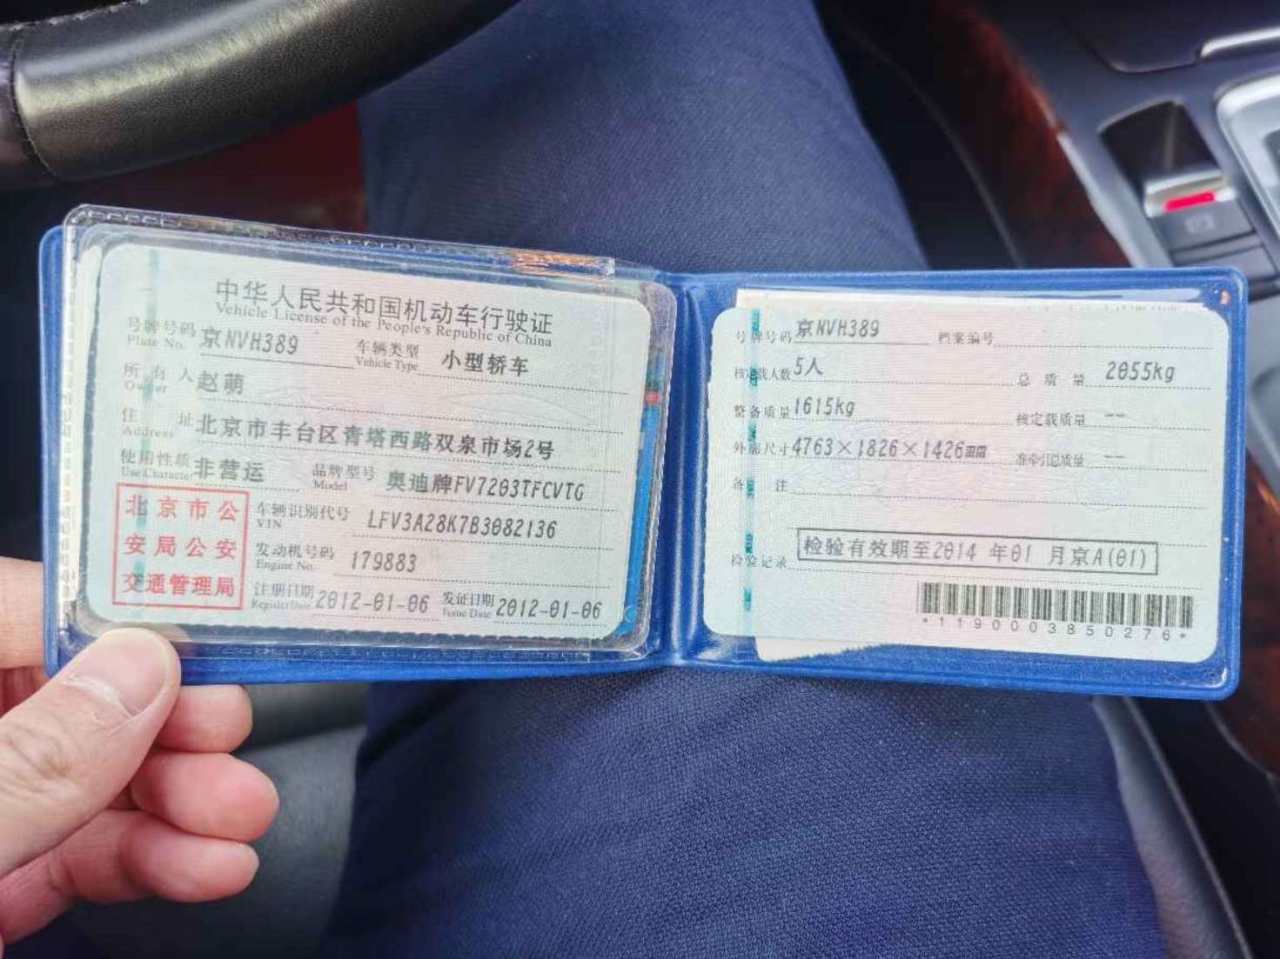 中华人民共和国机动车行驶证
Vehicle License of the People's Republic of China
号牌号码 京NVH389 车辆类型 小型轿车
Plate No. Vehicle Type
所有人 赵萌
Owner
住址 北京市丰台区青塔西路双泉市场2号
Address
使用性质 非营运 品牌型号 奥迪牌FV7203TFCVTG
Use Character Model
北京市公
安局公安
交通管理局
车辆识别代号 LFV3A28K7B3082136
VIN
发动机号码 179883
Engine No.
注册日期 2012-01-06 发证日期 2012-01-06
Register Date Issue Date
号牌号码 京NVH389 档案编号
核定载人数 5人 总质量 2055kg
整备质量 1615kg 核定载质量 --
外廓尺寸 4763×1826×1426mm 准牵引总质量 --
备注
检验记录 检验有效期至2014 年01 月京A(01)
*1190003850276*